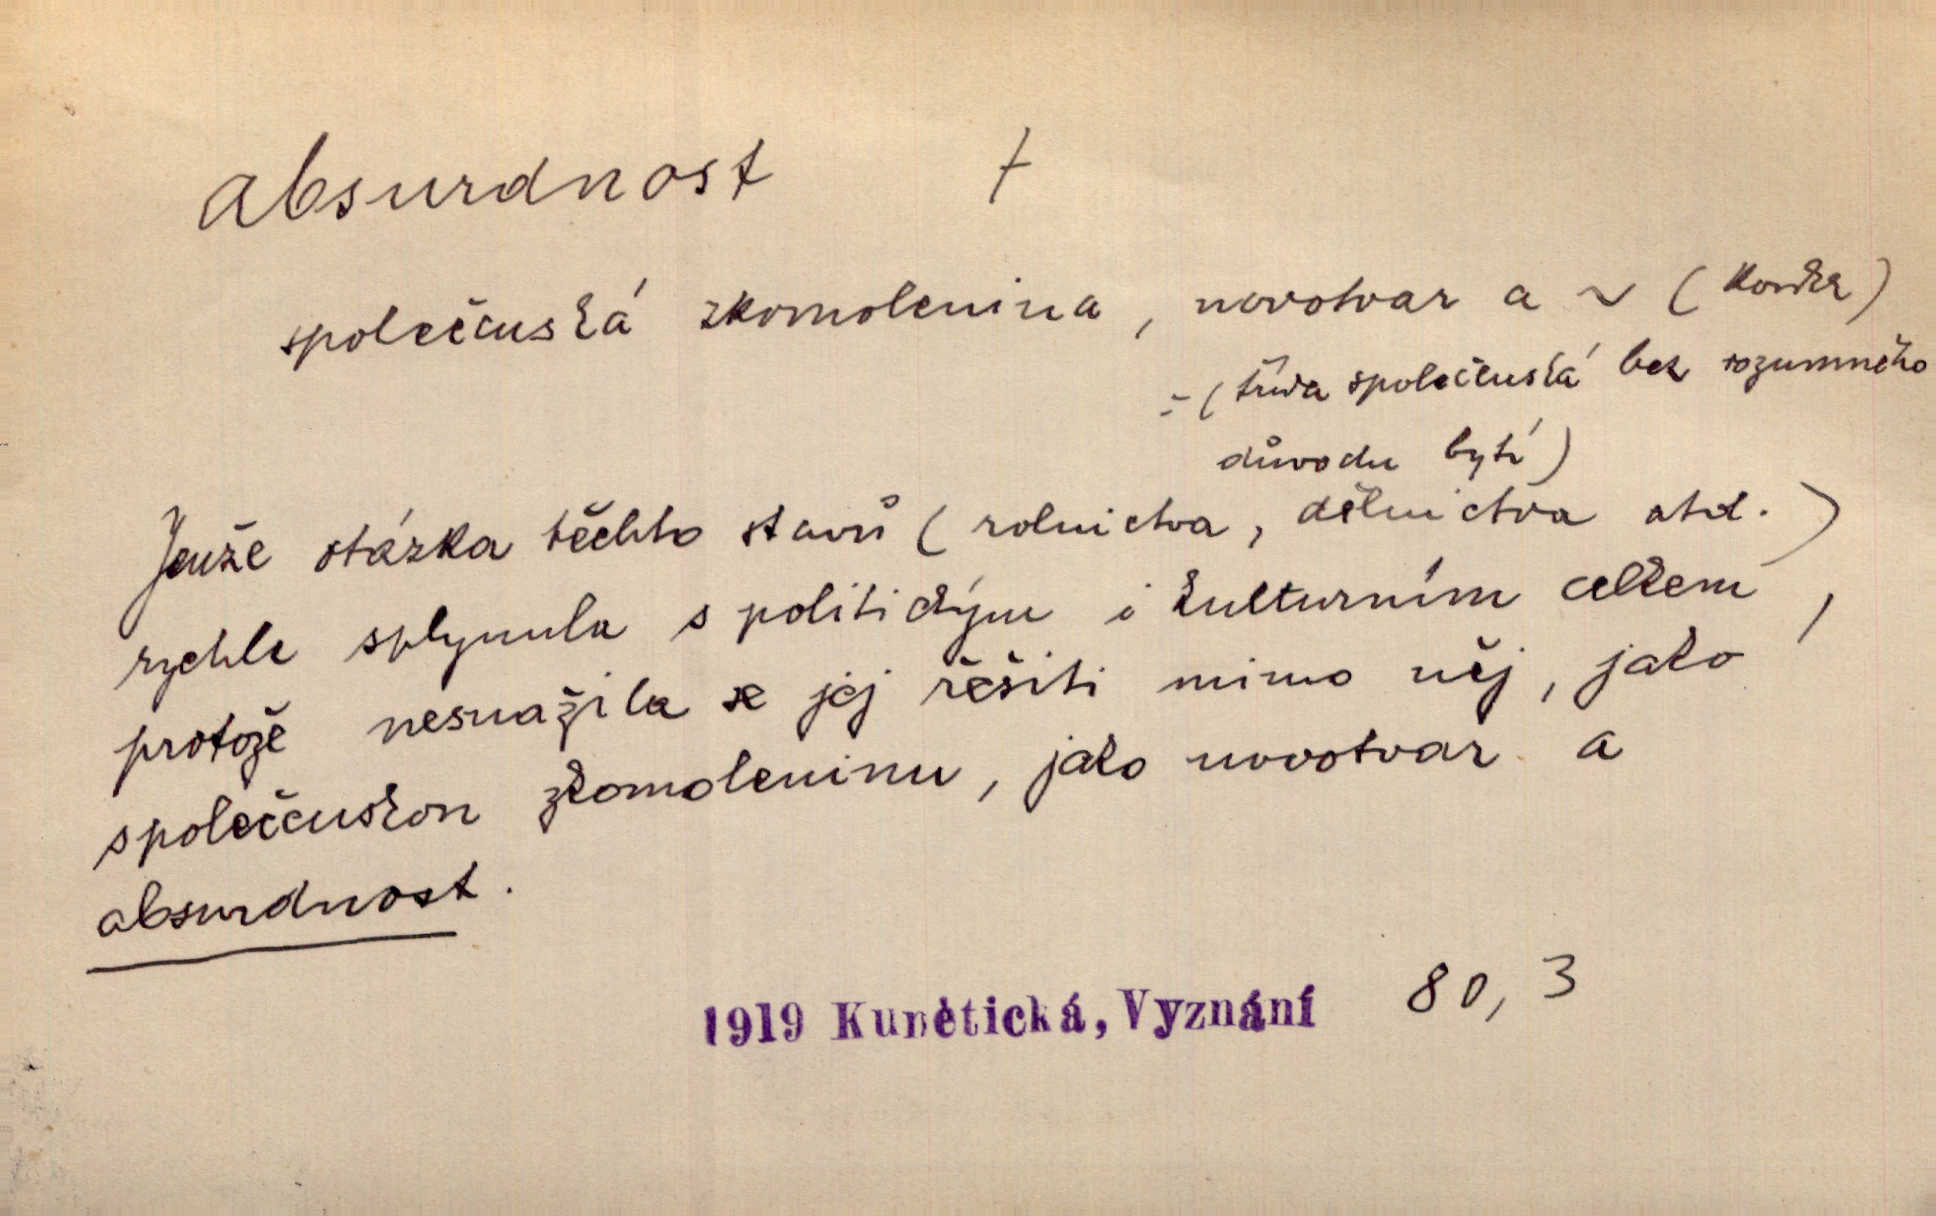 absurdnost †
společenská zkomolenina, novotvar a ~ (konkr)
= (třída společenská bez rozumného
důvodu bytí)
Jenže otázka těchto stavů (rolnictva, dělnictva atd.)
rychle splynula s politickým i kulturním celkem,
protože nesnažila se jej řešiti mimo něj, jako
společenskou zkomoleninu, jako novotvar a
absurdnost.
1919 Kunětická, Vyznání 80, 3